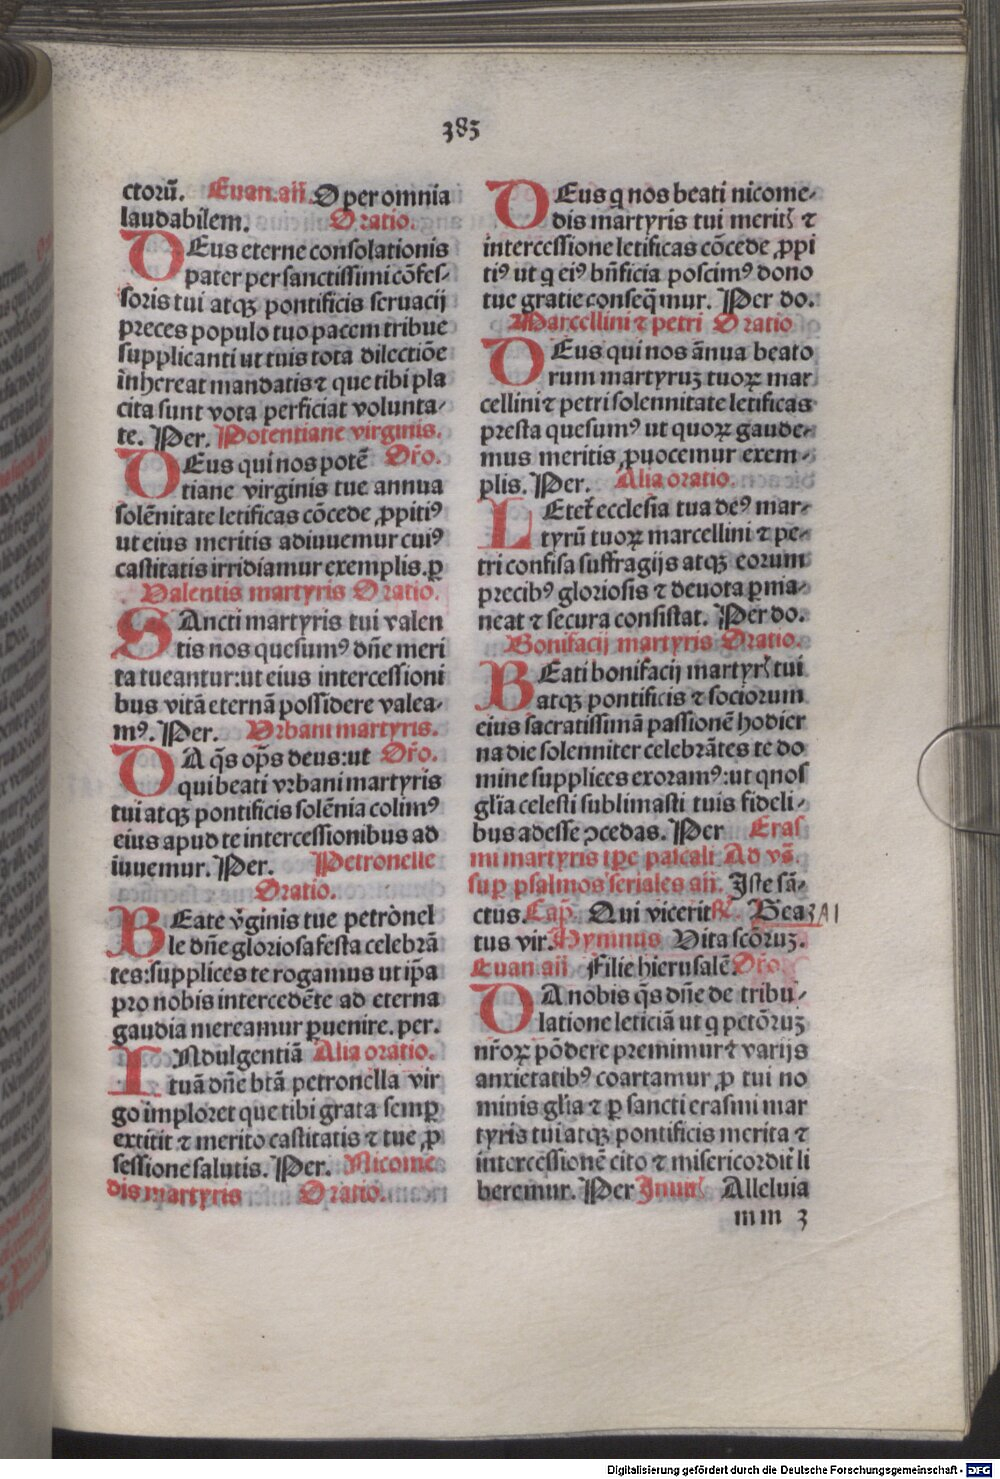 383
ctorū. Euan. añ. O per omnia
laudabilem. Oratio.
DEus eterne consolationis
pater per sanctissimi cōfes-
soris tui atqꝫ pontificis seruacij
preces populo tuo pacem tribue
supplicanti ut tuis tota dilectiōe
inhereat mandatis ⁊ que tibi pla
cita sunt vota perficiat volunta-
te. Per. Potentiane virginis.
DEus qui nos potē Or̄o.
tiane virginis tue annua
solēnitate letificas cōcede ꝓpitiꝰ
ut eius meritis adiuuemur cuiꝰ
castitatis irridiamur exemplis. ꝑ
Valentis martyris Oratio.
SAncti martyris tui valen
tis nos quesumꝰ dn̄e meri
ta tueantur: ut eius intercessioni
bus vitā eternā possidere valea-
mꝰ. Per. Vrbani martyris.
DA q̄s op̄s deus: ut Or̄o.
qui beati vrbani martyris
tui atqꝫ pontificis solēnia colimꝰ
eius apud te intercessionibus ad
iuuemur. Per. Petronelle
Oratio.
BEate v̄ginis tue petronel
le dn̄e gloriosa festa celebrā
tes: supplices te rogamus ut ip̄a
pro nobis intercedēte ad eterna
gaudia mereamur ꝑuenire. per.
INdulgentiā Alia oratio.
tuā dn̄e btā petronella vir
go imploret que tibi grata semꝑ
extitit ⁊ merito castitatis ⁊ tue ꝓ
fessione salutis. Per. Nicome
dis martyris Oratio.
DEus q nos beati nicome-
dis martyris tui merit̉ ⁊
intercessione letificas cōcede ꝓpi
tiꝰ ut q eiꝰ bn̄ficia poscimꝰ dono
tue gratie conseq̄mur. Per do.
Marcellini ⁊ petri Oratio
DEus qui nos ānua beato
rum martyruꝫ tuoꝝ mar
cellini ⁊ petri solennitate letificas
presta quesumꝰ ut quoꝝ gaude-
mus meritis ꝓuocemur exem-
plis. Per. Alia oratio.
LEtet̉ ecclesia tua deꝰ mar-
tyrū tuoꝝ marcellini ⁊ pe-
tri confisa suffragijs atqꝫ eorum
precibꝰ gloriosis ⁊ deuota ꝑma-
neat ⁊ secura consistat. Per do.
Bonifacij martyris Oratio.
BEati bonifacij martyr̉ tui
atqꝫ pontificis ⁊ sociorum
eius sacratissimā passionē hodier
na die solenniter celebrātes te do
mine supplices exoramꝰ: ut q nos
gl̄ia celesti sublimasti tuis fideli-
bus adesse ꝯcedas. Per Eras
mi martyris tꝑe pascali Ad vs̄.
suꝑ psalmos feriales añ. Iste sā-
ctus. Cap̄. Qui vicerit ℟. Bea
tus vir. Hymnus Vita scōruꝫ.
Euan añ Filie hierusalē Or̄o.
DA nobis q̄s dn̄e de tribu-
latione leticiā ut q pctōruꝫ
nr̄oꝝ pōdere premimur ⁊ varijs
anxietatibꝰ coartamur ꝓ tui no
minis gl̄ia ⁊ ꝑ sancti erasmi mar
tyris tui atqꝫ pontificis merita ⁊
intercessionē cito ⁊ misericordit̉ li
beremur. Per Inuit̉ Alleluia
mm 3
Digitalisierung gefördert durch die Deutsche Forschungsgemeinschaft - DFG